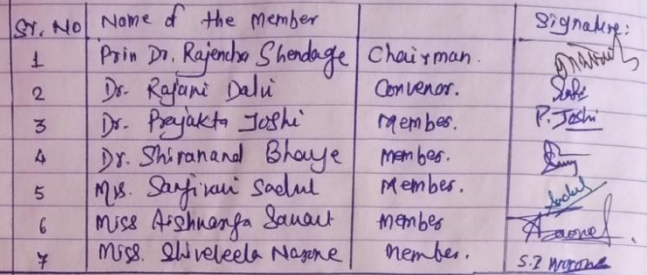 Sr. No Name of the Member Signature:
1 Prin Dr. Rajendra Shendage Chairman.
2 Dr. Rajani Dalvi Convenor.
3 Dr. Prajakta Joshi Member. P. Joshi
4 Dr. Shivanand Bhanje Member.
5 Ms. Sanjivani Sadul Member. Sadul
6 Miss Aishwarya Sawant Member
7 Miss. Shiveleela Narone Member.